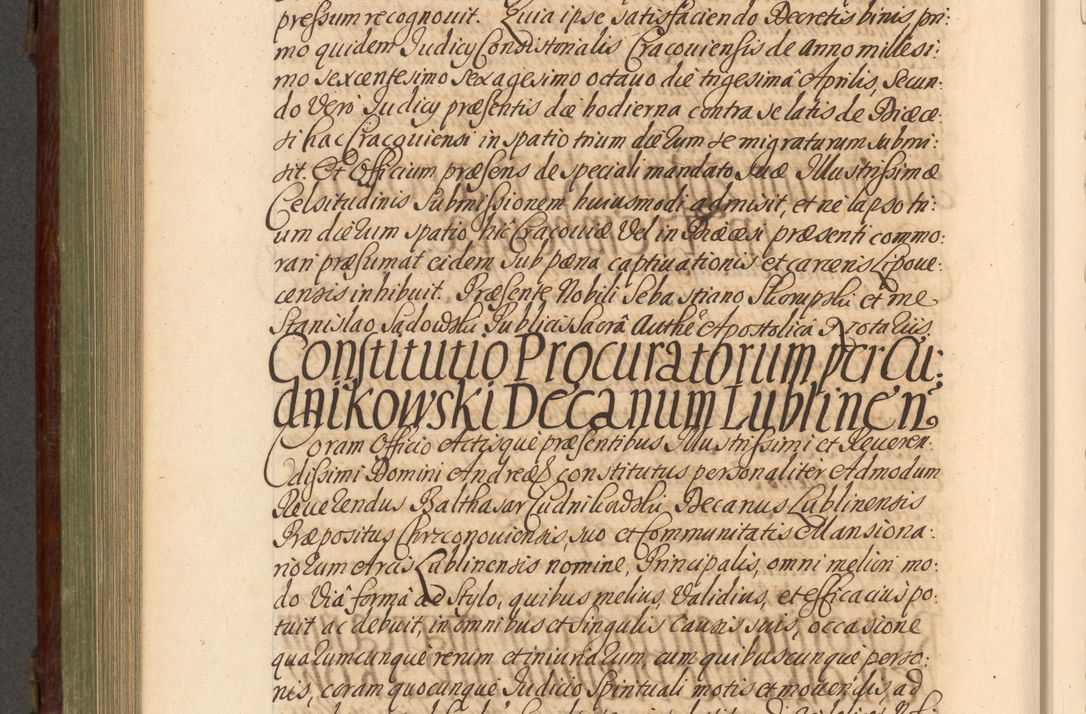 pressum recognouit. Quia ipse satisfaciendo Decretis binis, pri:
mo quidem Iudicy Consistorialis Cracouiensis de anno millesi:
mo sexcentesimo sexagesimo octauo die trigesimâ Aprilis, secun:
do Vero Iudicy præsentis die hodierna contra se latis de Diæce:
si hac Cracouiensi in spatio trium dierum se migraturum submi:
sit. Et Officium præsens de speciali mandato suæ Illustrissimæ
Celsitudinis submissionem huiusmodi admisit, et ne lapso tri:
um dierum spatio hic Cracouiæ Vel in Diæcesi præsenti commo:
rari præsumat eidem sub pæna captiuationis et carceris Lipoue:
censis inhibuit. Præsente Nobili Sebastiano Skorupski et me
Stanislao Sadowski Publicis Sacrâ Authe Apostolicâ Notariis.
Constitutio Procuratorum per Cu:
dnikowski Decanum Lublinen
Coram Officio Actisque præsentibus Illustrissimi et Reueren:
dissimi Domini Andreæ constitutus personaliter Admodum
Reuerendus Balthasar Cudnikowski Decanus Lublinensis
Præpositus Chrzconouiensis, suo et Communitatis Mansiona:
riorum Arcis Lublinensis nomine, Principalis, omni meliori mo:
do Viâ formâ ac stylo, quibus melius, Validius, et efficacius po:
tuit ac debuit, in omnibus et singulis causis suis, occasione
quarumcunque rerum et iniuriarum, cum quibuscunque perso:
nis, coram quocunque Iudicio Spirituali motis et mouendis, ad